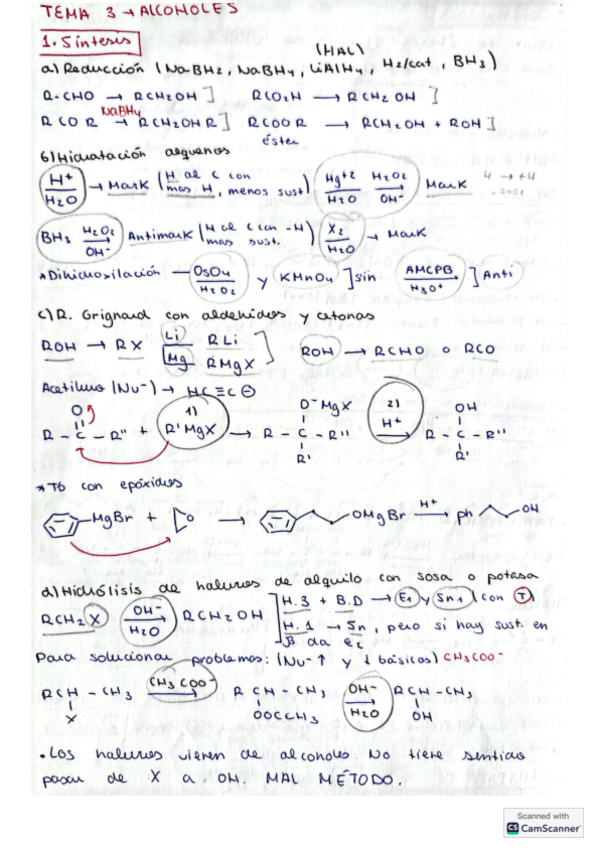 TEMA 3 → ALCOHOLES
1. Síntesis
(HAL)
a) Reducción (Na BH2, NaBH4, LiAlH4, H2/cat, BH3)
R-CHO → RCH2OH ] RCO2H → RCH2OH ]
R CO R NaBH4 → RCH2OH R ] R COO R → RCH2OH + ROH ]
éster
b) Hidratación alquenos
H+ / H2O → Mark (H al C con mas H, menos sust) Hg+2 / H2O H2O2 / OH- → Mark
BH3 H2O2 / OH- → Antimark (H al C con -H mas sust.) X2 / H2O → Mark
*Dihidroxilación — OsO4 / H2O2 y KMnO4 ] sin AMCPB / H3O+ ] Anti
c) R. Grignard con aldehidos y cetonas
ROH → RX Li / Mg RLi / RMgX ] ROH → RCHO o RCO
Acetiluro (Nu-) → HC≡C⊖
O O- MgX 2) OH
R - C - R'' + 1) R'MgX → R - C - R'' H+ → R - C - R''
R' R'
*Tb con epóxidos
MgBr + O → OMgBr H+ → ph OH
d) Hidrólisis de haluros de alquilo con sosa o potasa
RCH2X OH- / H2O → RCH2OH [H.3 + B.D → E1 y Sn1 (con T)
H.1 → Sn, pero si hay sust. en
B da E2
Para solucionar problemas: (Nu-↑ y ↓ básicos) CH3COO-
RCH - CH3 CH3COO- → R CH - CH3 OH- / H2O → RCH - CH3
X OOCCH3 OH
• Los haluros vienen de alcoholes. No tiene sentido
pasar de X a OH. MAL MÉTODO.
Scanned with
CS CamScanner